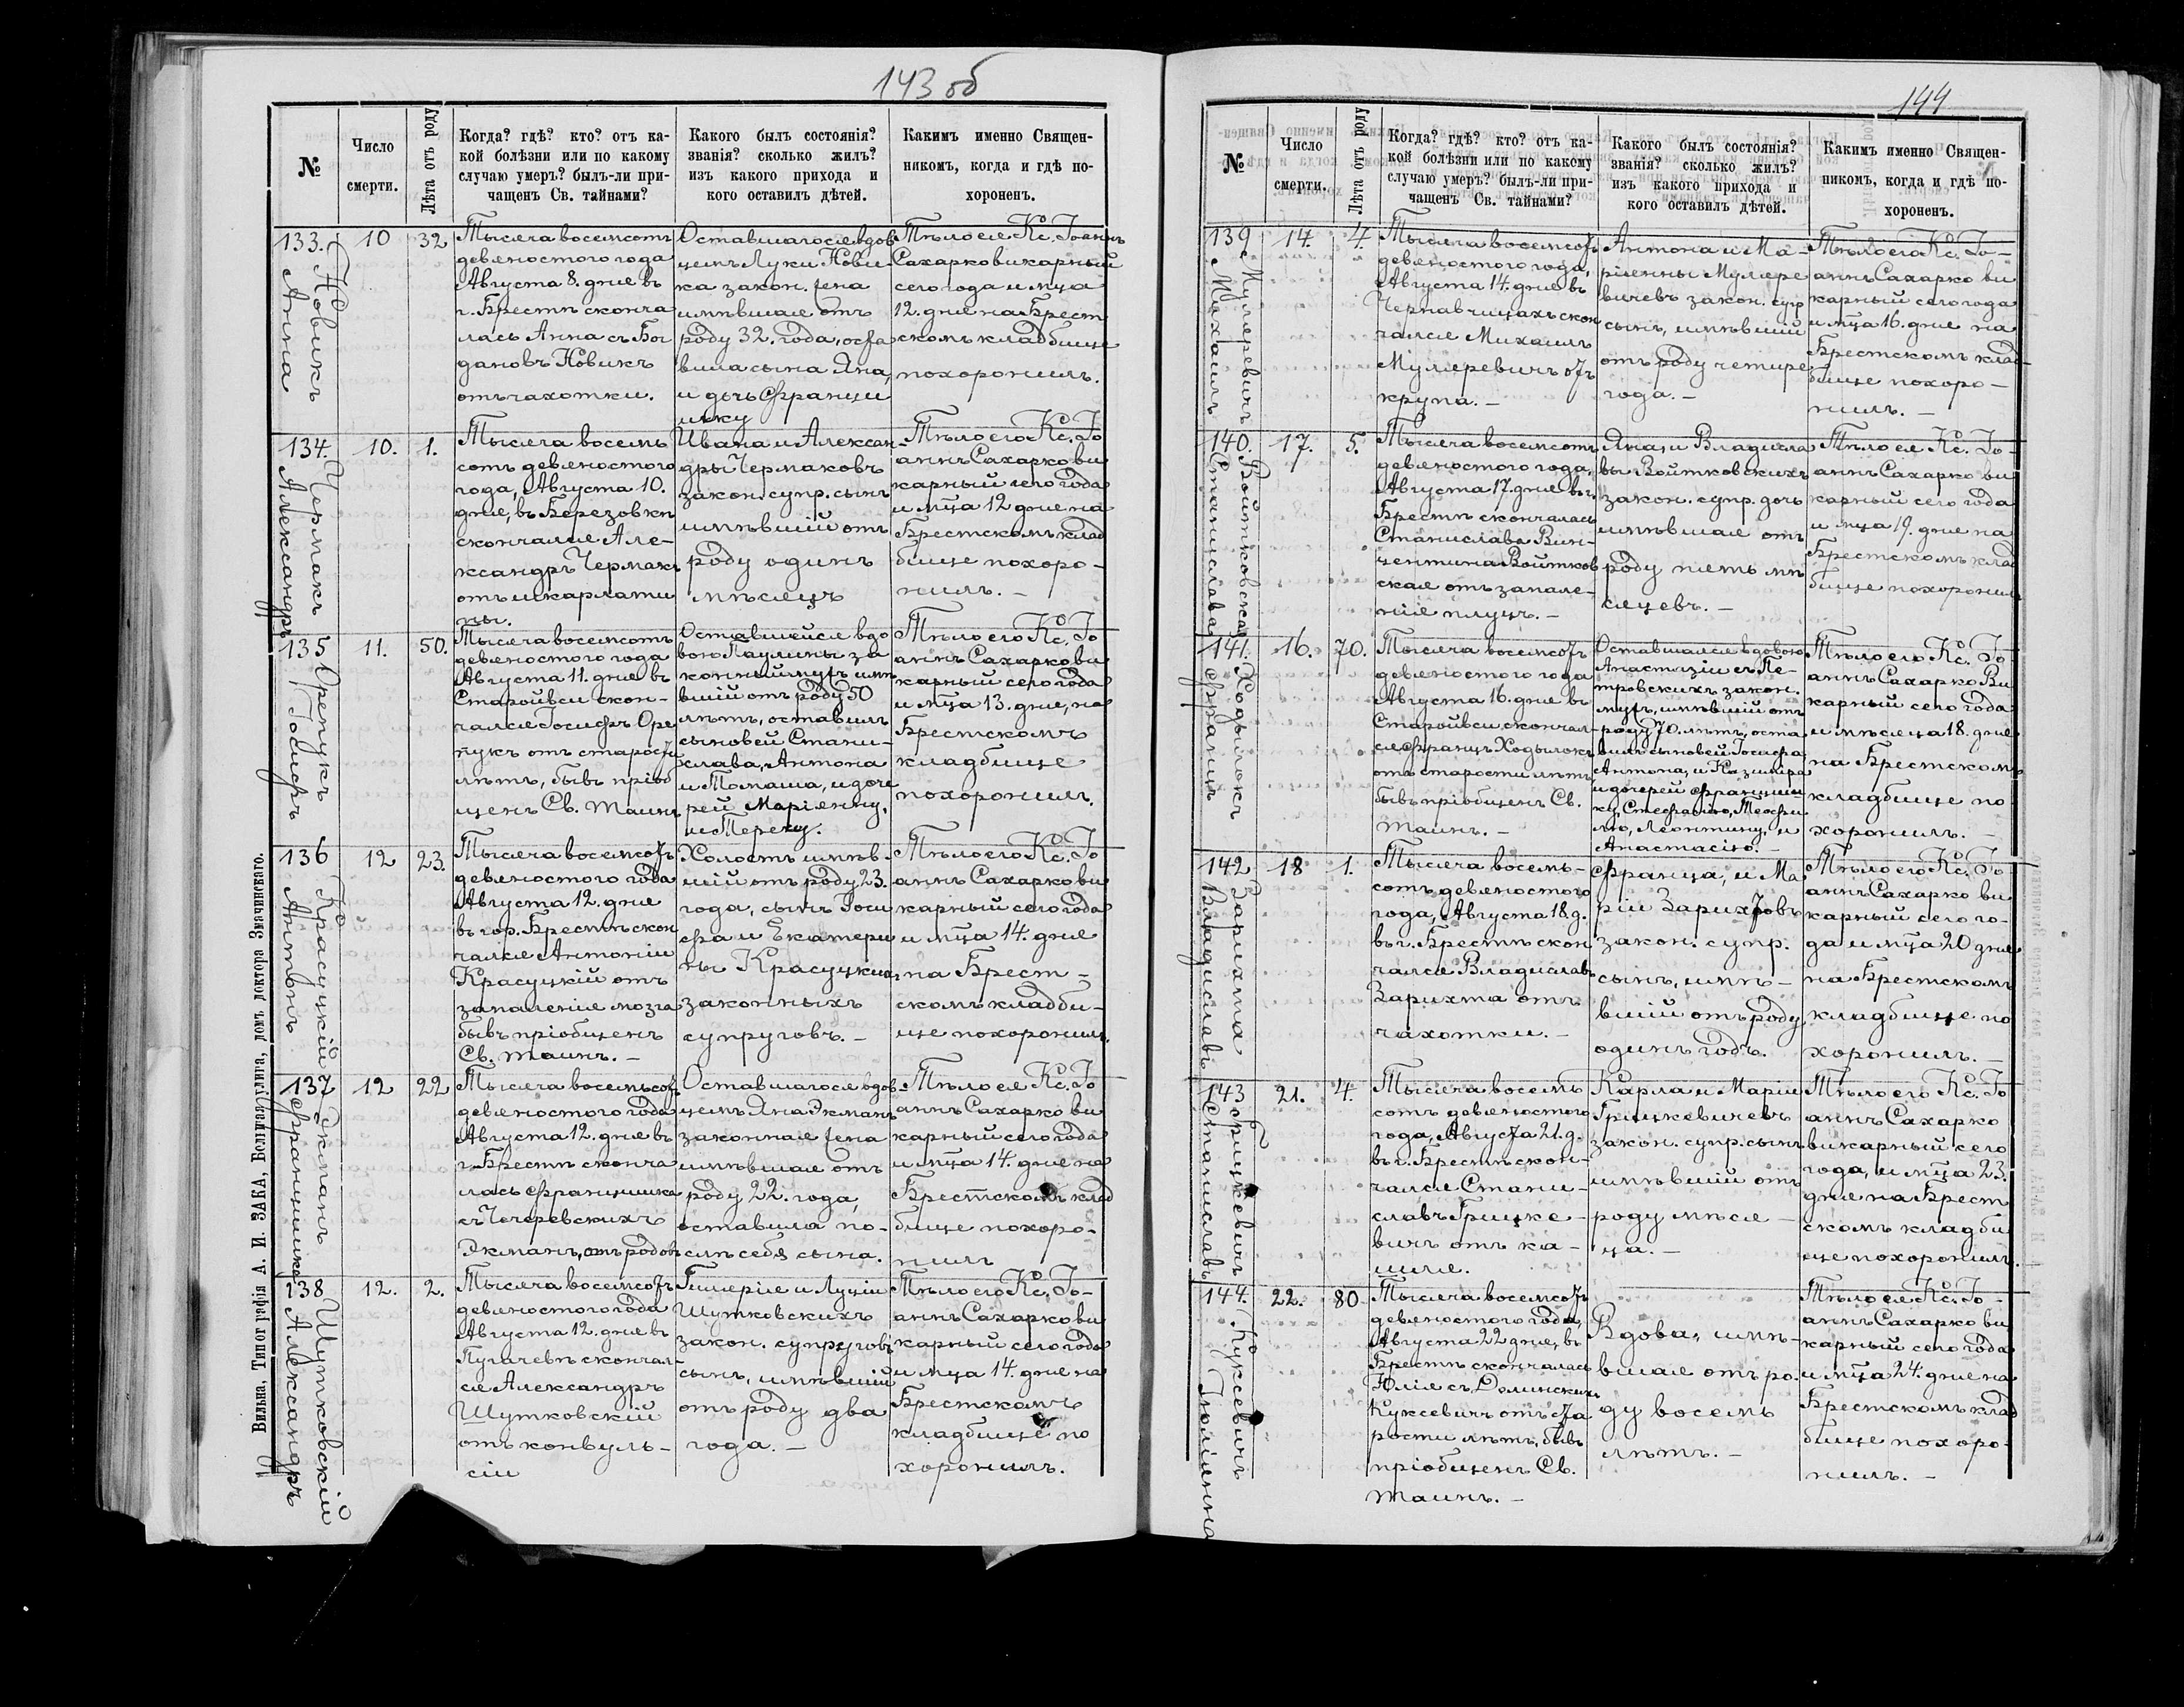 143 об
№
Число
смерти.
Лѣта отъ роду
Когда? гдѣ? кто? отъ ка-
кой болѣзни или по какому
случаю умеръ? былъ-ли при-
чащенъ Св. тайнами?
Какого былъ состоянія?
званія? сколько жилъ?
изъ какого прихода и
кого оставилъ дѣтей.
Какимъ именно Священ-
никомъ, когда и гдѣ по-
хороненъ.
133.
Новикъ
Анна
10
32
Тысяча восемсотъ
девяностого года
Августа 8. дня въ
г. Брестѣ сконча
лась Анна съ Бог
дановъ Новикъ
отъ чахотки.
Оставшагося вдов
цемъ Луки Нови-
ка закон. жена
имѣвшая отъ
роду 32. года, оста
вила сына Яна,
и дочь Францишку
Тѣло ея Кс. Іоаннъ
Сахарко викарный
сего года и мца
12. дня на Брест
скомъ кладбище
похоронилъ.
134.
Чермакъ
Александръ
10.
1.
Тысяча восемь
сотъ девяностого
года, Августа 10.
дня, въ Березовкѣ
скончался Але-
ксандръ Чермакъ
отъ шкарлати
ны.
Ивана и Алексан-
дры Чермаковъ
закон. супр. сынъ
имѣвшій отъ
роду одинъ
мѣсяцъ
Тѣло его Кс. Іо
аннъ Сахарко ви
карный сего года
и мца 12 дня на
Брестскомъ клад
бище похоро-
нилъ. –
135
Орепукъ
Іосифъ
11.
50.
Тысяча восемсотъ
девяностого года
Августа 11. дня въ
Старойвси скон-
чался Іосифъ Оре
пукъ отъ старости
лѣтъ, бывъ пріоб
щенъ Св. таинъ
Оставшейся вдо
вою Паулины за
конный мужъ имѣ
вшій отъ роду 50
лѣтъ, оставилъ
сыновей Стани-
слава, Антона
и Томаша, и доче
рей Маріянну,
и Терезу.
Тѣло его Кс. Іо
аннъ Сахарко ви
карный сего года
и мца 13. дня, на
Брестскомъ
кладбище
похоронилъ.
136
Красуцкій
Антонъ
12
23.
Тысяча восемсотъ
девяностого года
Августа 12. дня
въ гор. Брестѣ скон
чался Антоній
Красуцкій отъ
запаленія мозга
бывъ пріобщенъ
Св. таинъ. –
Холостъ имѣв-
шій отъ роду 23.
года, сынъ Іоси
фа и Екатери
ны Красуцкихъ
законныхъ
супруговъ. –
Тѣло его Кс. Іо
аннъ Сахарко ви
карный сего года
и мца 14. дня
на Брест-
скомъ кладби-
ще похоронилъ.
137
Экманъ
Францишка
12
22
Тысяча восемьсотъ
девяностого года
Августа 12. дня въ
г. Брестѣ сконча
лась Францишка
съ Чечеревскихъ
Экманъ, отъ родовъ
Оставшагося вдов-
цемъ Яна Экманъ
законная жена
имѣвшая отъ
роду 22. года,
оставила по-
слѣ себя сына.
Тѣло ея Кс. Іо
аннъ Сахарко ви
карный сего года
и мца 14. дня на
Брестскомъ клад
бище похоро-
нилъ
138
Шутковскій
Александръ
12.
2.
Тысяча восемсотъ
девяностого года
Августа 12. дня въ
Пугачевѣ скончал-
ся Александръ
Шутковскій
отъ конвуль-
сіи
Гилярія и Луціи
Шутковскихъ
закон. супруговъ
сынъ, имѣвшій
отъ роду два
года. –
Тѣло его Кс. Іо-
аннъ Сахарко ви
карный сего года
и мца 14. дня на
Брестскомъ
кладбище по
хоронилъ.
Вильна, Типографія А. И. ЗАКА, Большая улица, домъ доктора Змачинскаго.
144
№
Число
смерти.
Лѣта отъ роду
Когда? гдѣ? кто? отъ ка-
кой болѣзни или по какому
случаю умеръ? былъ-ли при-
чащенъ Св. тайнами?
Какого былъ состоянія?
званія? сколько жилъ?
изъ какого прихода и
кого оставилъ дѣтей.
Какимъ именно Священ-
никомъ, когда и гдѣ по-
хороненъ.
139
Муляревичъ
Михаилъ
14.
4.
Тысяча восемсотъ
девяностого года,
Августа 14. дня въ
Чернавчицахъ скон
чался Михаилъ
Муляревичъ отъ
крупа. –
Антона и Ма-
ріянны Муляре
вичевъ закон. супр
сынъ, имѣвшій
отъ роду четире
года. –
Тѣло его Кс. Іо-
аннъ Сахарко ви
карный сего года
и мца 16. дня на
Брестскомъ клад-
бище похоро-
нилъ. –
140.
Войтковская
Станислава
17.
5.
Тысяча восемсотъ
девяностого года,
Августа 17. дня въ г.
Брестѣ скончалась
Станислава Вин-
центина Войтков
ская отъ запале-
нія плуцъ. –
Яна, и Владисла
вы Войтковскихъ
закон. супр. дочь
имѣвшая отъ
роду пять мѣ
сяцевъ. –
Тѣло ея Кс. Іо-
аннъ Сахарко ви
карный сего года
и мца 19. дня на
Брестскомъ клад
бище похоронилъ
141.
Ходылюкъ
Францъ
16.
70.
Тысяча восемсотъ
девяностого года
Августа 16. дня въ
Старойвси скончал-
ся Францъ Ходылюкъ
отъ старости лѣтъ,
бывъ пріобщенъ Св.
таинъ. –
Оставшаяся вдовою
Анастазіи съ Пе-
тровскихъ закон.
мужъ, имѣвшій отъ
роду 70. лѣтъ, оста
вилъ сыновей Іосифа,
Антона, и Казиміра
и дочерей Францишку,
Стефанію, Теофи
лю, Леонтину, и
Анастасію. –
Тѣло его Кс. Іо
аннъ Сахарко Ви
карный сего года
и мѣсяца 18. дня
на Брестскомъ
кладбище по
хоронилъ. –
142
Зарихта
Владиславъ
18
1.
Тысяча восемь-
сотъ девяностого
года, Августа 18 д.
въ г. Брестѣ скон
чался Владиславъ
Зарихта отъ
чахотки. –
Франца, и Ма
ріи Зарихтовъ
закон. супр.
сынъ, имѣ-
вшій отъ роду
одинъ годъ.
Тѣло его Кс. Іо-
аннъ Сахарко ви
карный сего го-
да и мца 20 дня
на Брестскомъ
кладбище по
хоронилъ. –
143
Грицкевичъ
Станиславъ
21.
4.
Тысяча восемь
сотъ девяностого
года, Августа 21. д.
въ г. Брестѣ скон-
чался Стани-
славъ Грицке-
вичъ отъ ка-
шля.
Карла и Маріи
Грицкевичевъ
закон. супр. сынъ
имѣвшій отъ
роду мѣся-
ца. –
Тѣло его Кс. Іо
аннъ Сахарко
викарный сего
года, и мца 23.
дня на Брест
скомъ кладби
ще похоронилъ.
144.
Куксевичъ
Юліянна
22.
80
Тысяча восемсотъ
девяностого года,
Августа 22 дня, въ
Брестѣ скончалась
Юлія съ Долинскихъ
Куксевичъ отъ ста
рости лѣтъ, бывъ
пріобщенъ Св.
таинъ. –
Вдова, имѣ-
вшая отъ ро-
ду восемь
лѣтъ. –
Тѣло ея Кс. Іо-
аннъ Сахарко ви
карный сего года
и мца 24. дня на
Брестскомъ клад
бище похоро-
нилъ. –